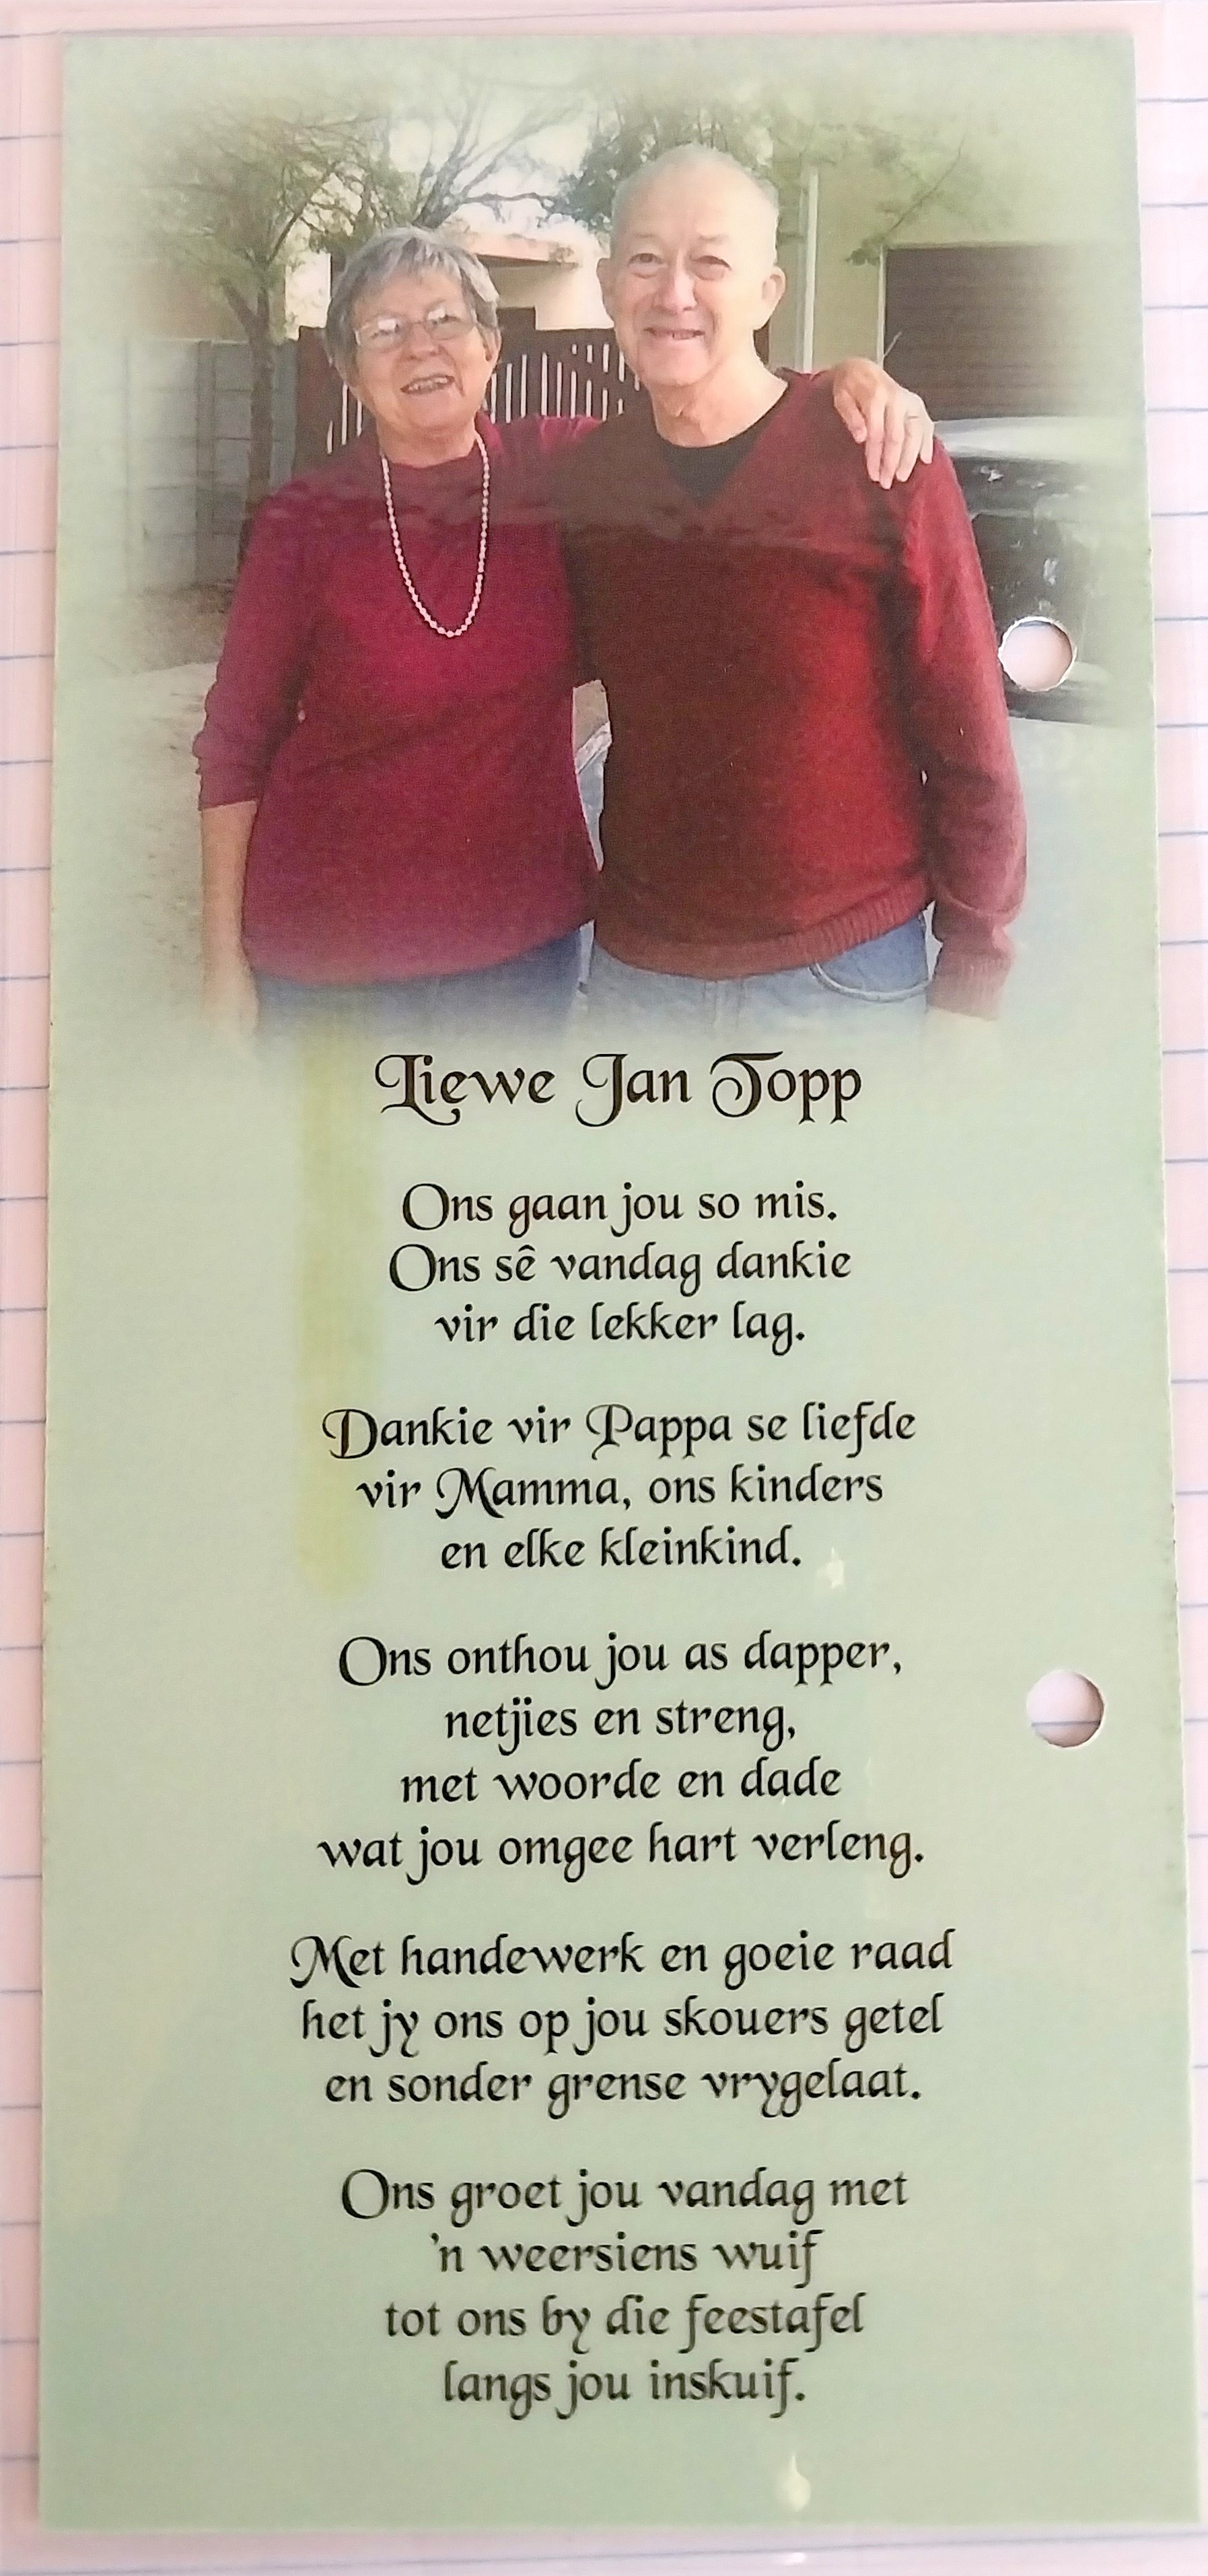 Liewe Jan Topp
Ons gaan jou so mis.
Ons sê vandag dankie
vir die lekker lag.
Dankie vir Pappa se liefde
vir Mamma, ons kinders
en elke kleinkind.
Ons onthou jou as dapper,
netjies en streng,
met woorde en dade
wat jou omgee hart verleng.
Met handewerk en goeie raad
het jy ons op jou skouers getel
en sonder grense vrygelaat.
Ons groet jou vandag met
'n weersiens wuif
tot ons by die feestafel
langs jou inskuif.